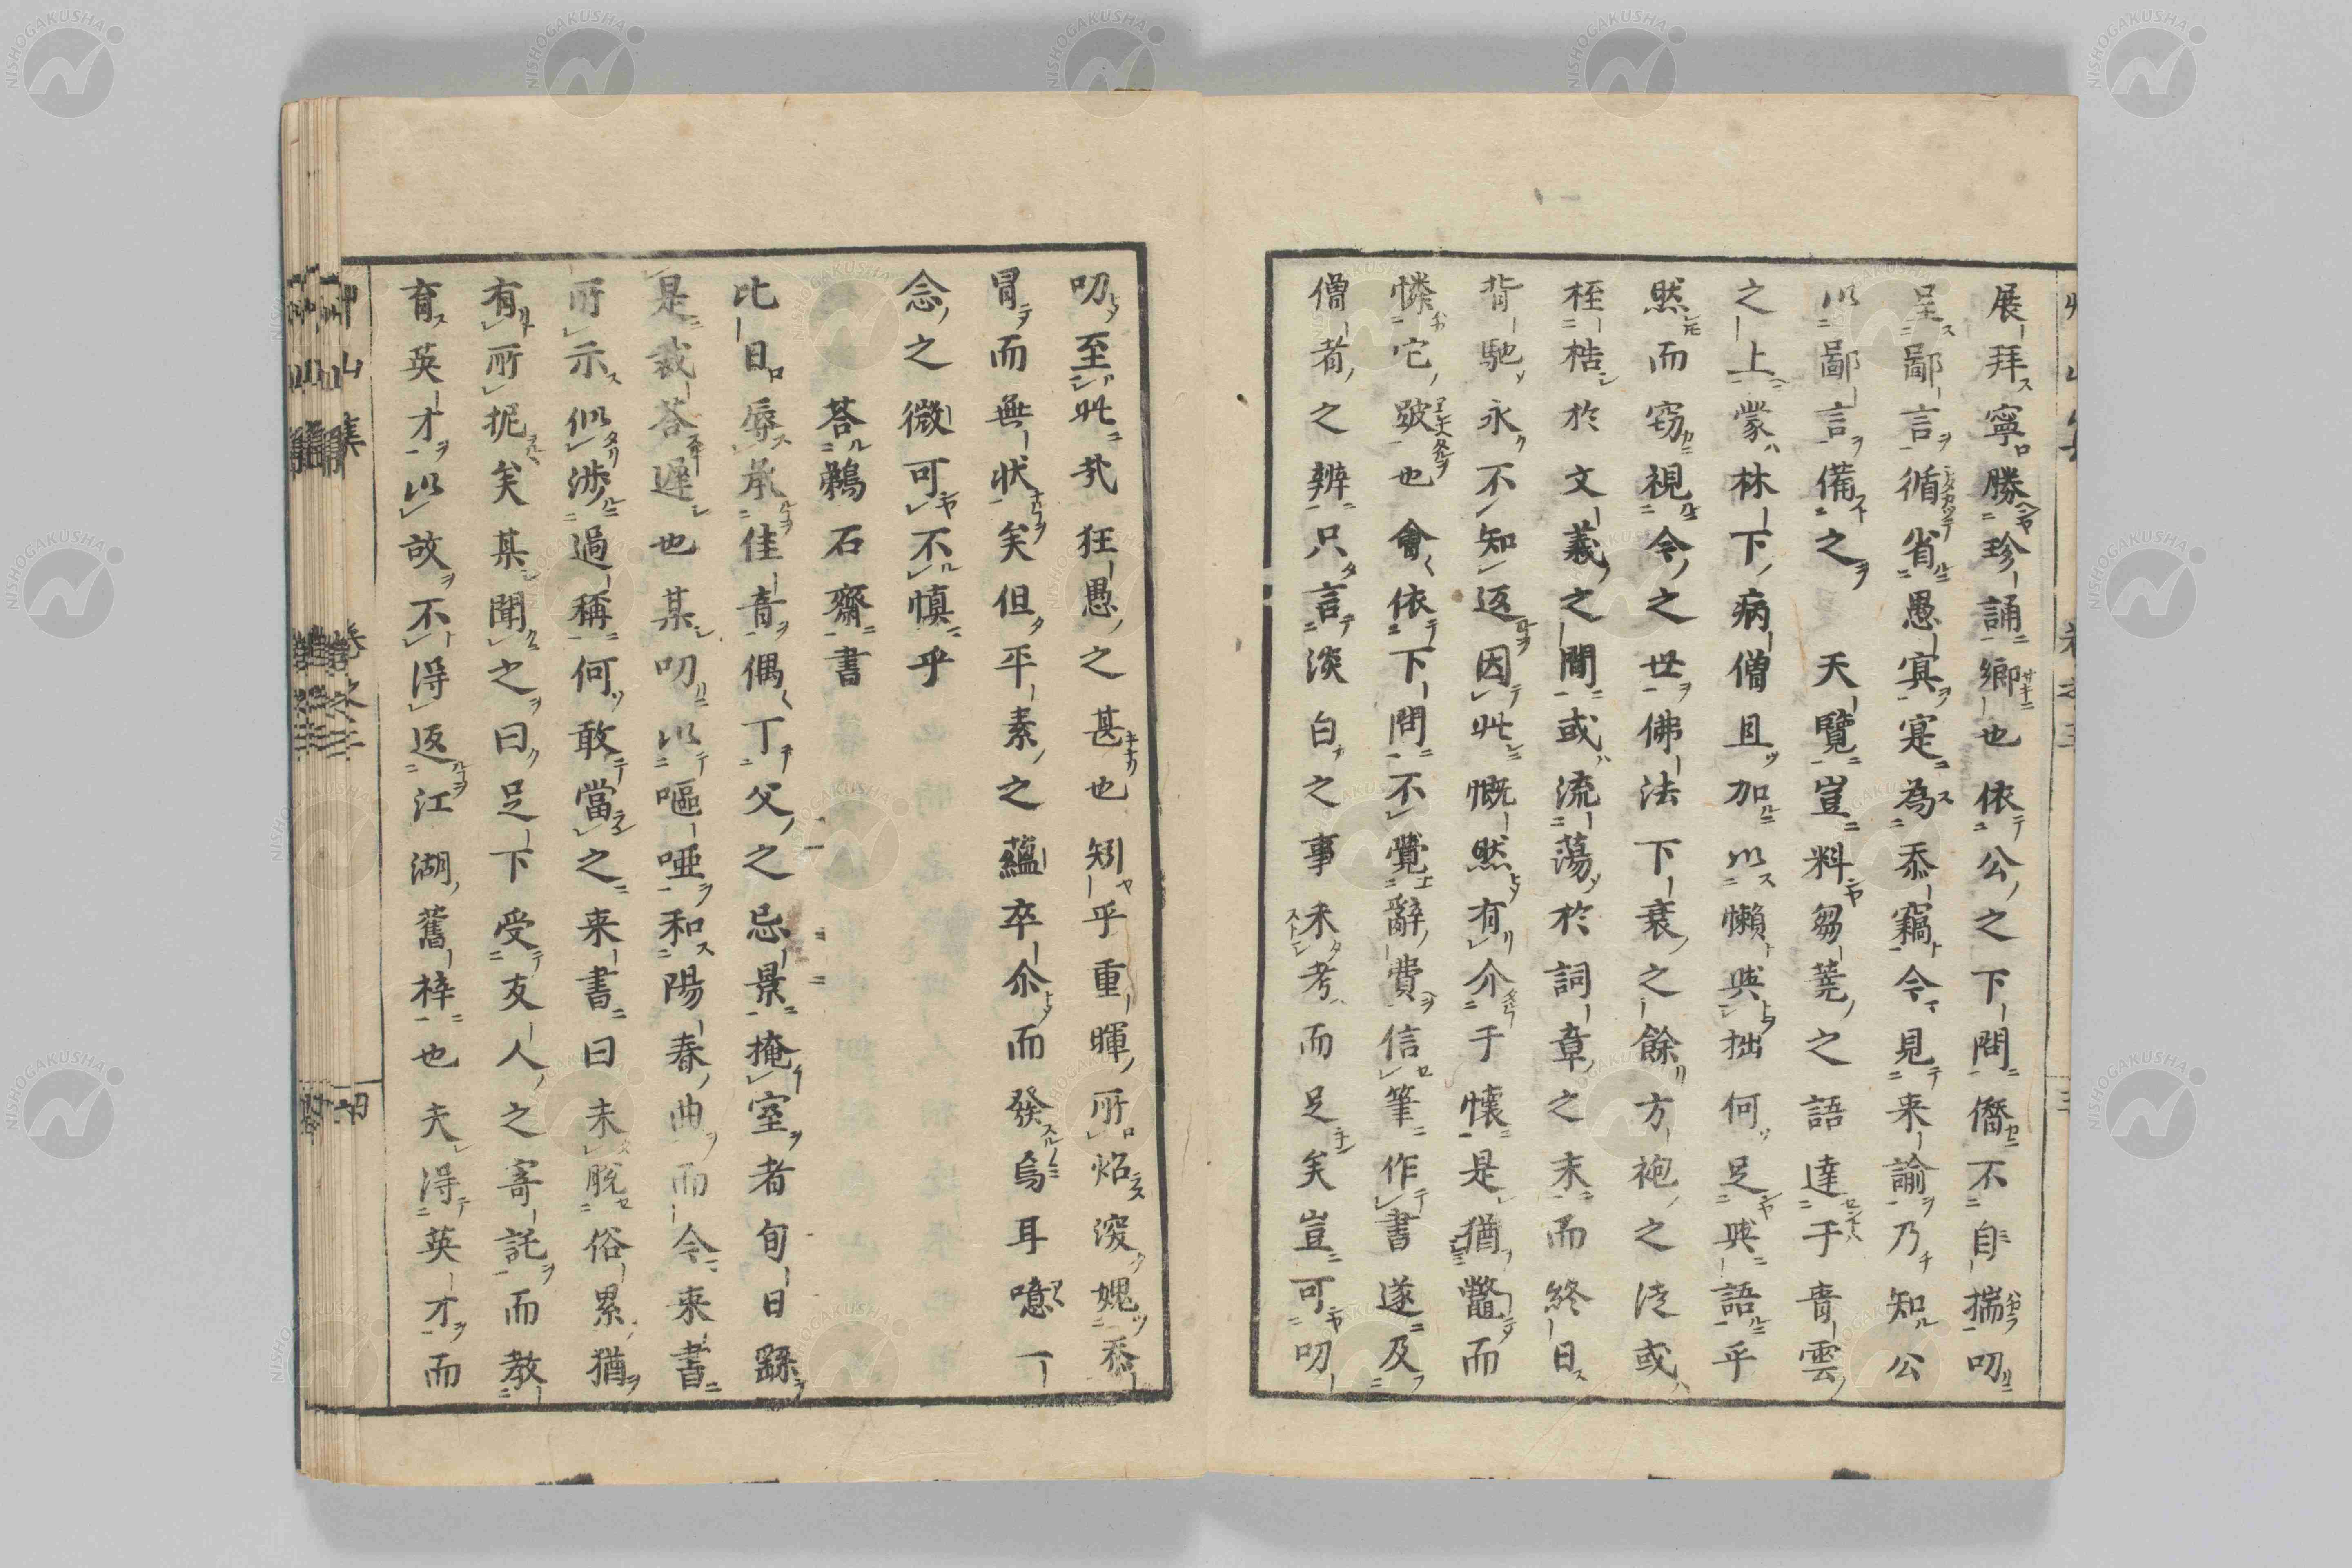 展拜寧勝珍誦鄉也依公之下問僭不自揣叨
呈鄙言循省愚寘寔為忝竊今見来諭乃知公
以鄙言備之　天覽豈料芻蕘之語達于青雲
之上蒙林下病僧且加以懶與拙何足與語乎
然而窃視今之世佛法下衰之餘方袍之徒或
桎梏於文義之間或流蕩於詞章之末而終日
背馳永不知返因此慨然有介于懷是猶鼈而
憐它跛也會依下問不覺辭費信筆作書遂及
僧者之辨只言淡白之事未考而足矣豈可叨
叨至此㢤狂愚之甚也矧乎重暉所炤深媿忝
冒而無狀矣但平素之蘊卒尒而發烏耳噫一
念之微可不慎乎
荅鵜石齋書
比日辱承佳音偶丁父之忌景掩室者旬日繇
是裁荅遲也某叨以嘔啞和陽春曲而今来書
所示似涉過稱何敢當之来書曰未脫俗累猶
有所抳矣某聞之曰足下受友人之寄託而教
育英才以故不得返江湖舊梓也夫得英才而
艸山集
卷之三
四